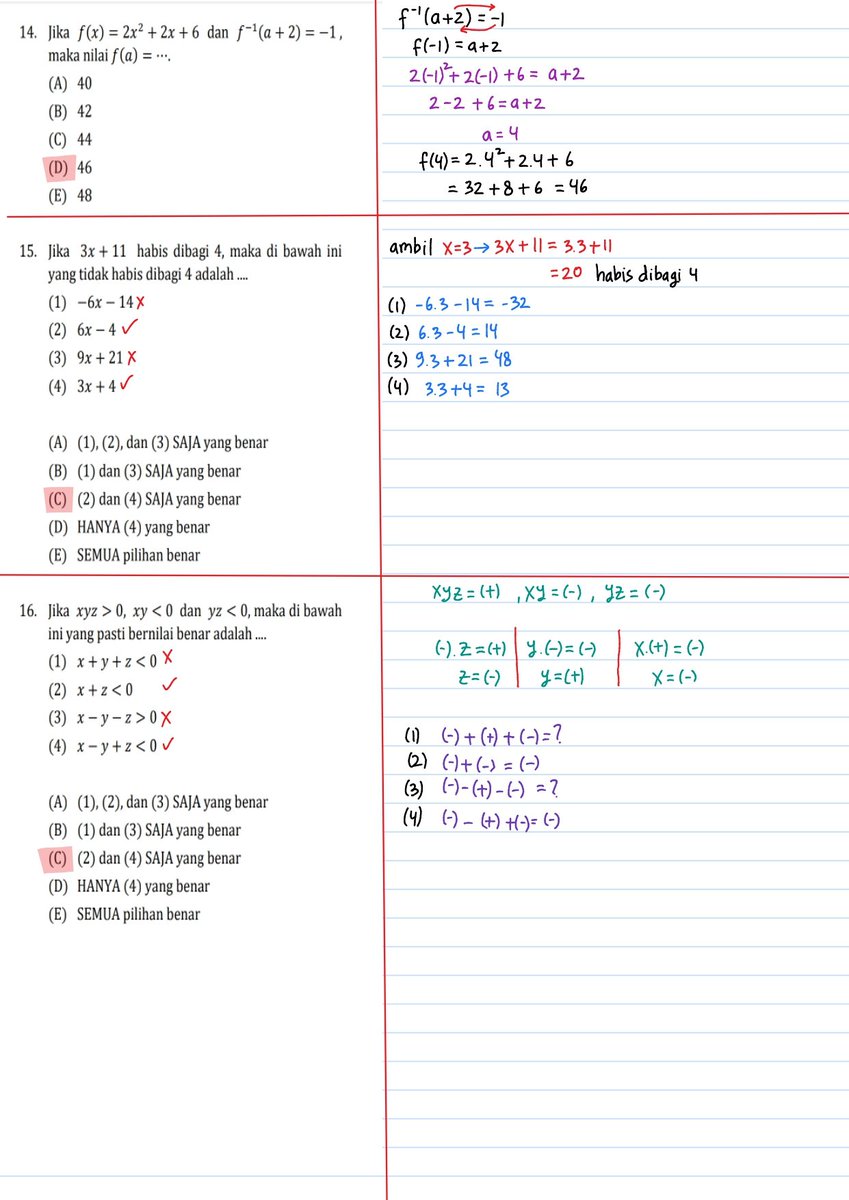 14. Jika f(x) = 2x² + 2x + 6 dan f⁻¹(a + 2) = −1,
maka nilai f(a) = ⋯.
(A) 40
(B) 42
(C) 44
(D) 46
(E) 48
f⁻¹(a+2) = -1
f(-1) = a+2
2(-1)²+2(-1)+6 = a+2
2-2+6 = a+2
a = 4
f(4) = 2.4²+2.4+6
= 32+8+6 = 46
15. Jika 3x + 11 habis dibagi 4, maka di bawah ini
yang tidak habis dibagi 4 adalah ....
(1) −6x − 14 ✗
(2) 6x − 4 ✓
(3) 9x + 21 ✗
(4) 3x + 4 ✓
(A) (1), (2), dan (3) SAJA yang benar
(B) (1) dan (3) SAJA yang benar
(C) (2) dan (4) SAJA yang benar
(D) HANYA (4) yang benar
(E) SEMUA pilihan benar
ambil x=3 → 3x+11 = 3.3+11
=20 habis dibagi 4
(1) -6.3-14 = -32
(2) 6.3-4 = 14
(3) 9.3+21 = 48
(4) 3.3+4 = 13
16. Jika xyz > 0, xy < 0 dan yz < 0, maka di bawah
ini yang pasti bernilai benar adalah ....
(1) x + y + z < 0 ✗
(2) x + z < 0 ✓
(3) x − y − z > 0 ✗
(4) x − y + z < 0 ✓
(A) (1), (2), dan (3) SAJA yang benar
(B) (1) dan (3) SAJA yang benar
(C) (2) dan (4) SAJA yang benar
(D) HANYA (4) yang benar
(E) SEMUA pilihan benar
xyz = (+) , xy = (-) , yz = (-)
(-).z = (+) | y.(-) = (-) | x.(+) = (-)
z = (-) | y = (+) | x = (-)
(1) (-)+(+)+(-)=?
(2) (-)+(-) = (-)
(3) (-)-(+)-(-) = ?
(4) (-)-(+)+(-)=(-)